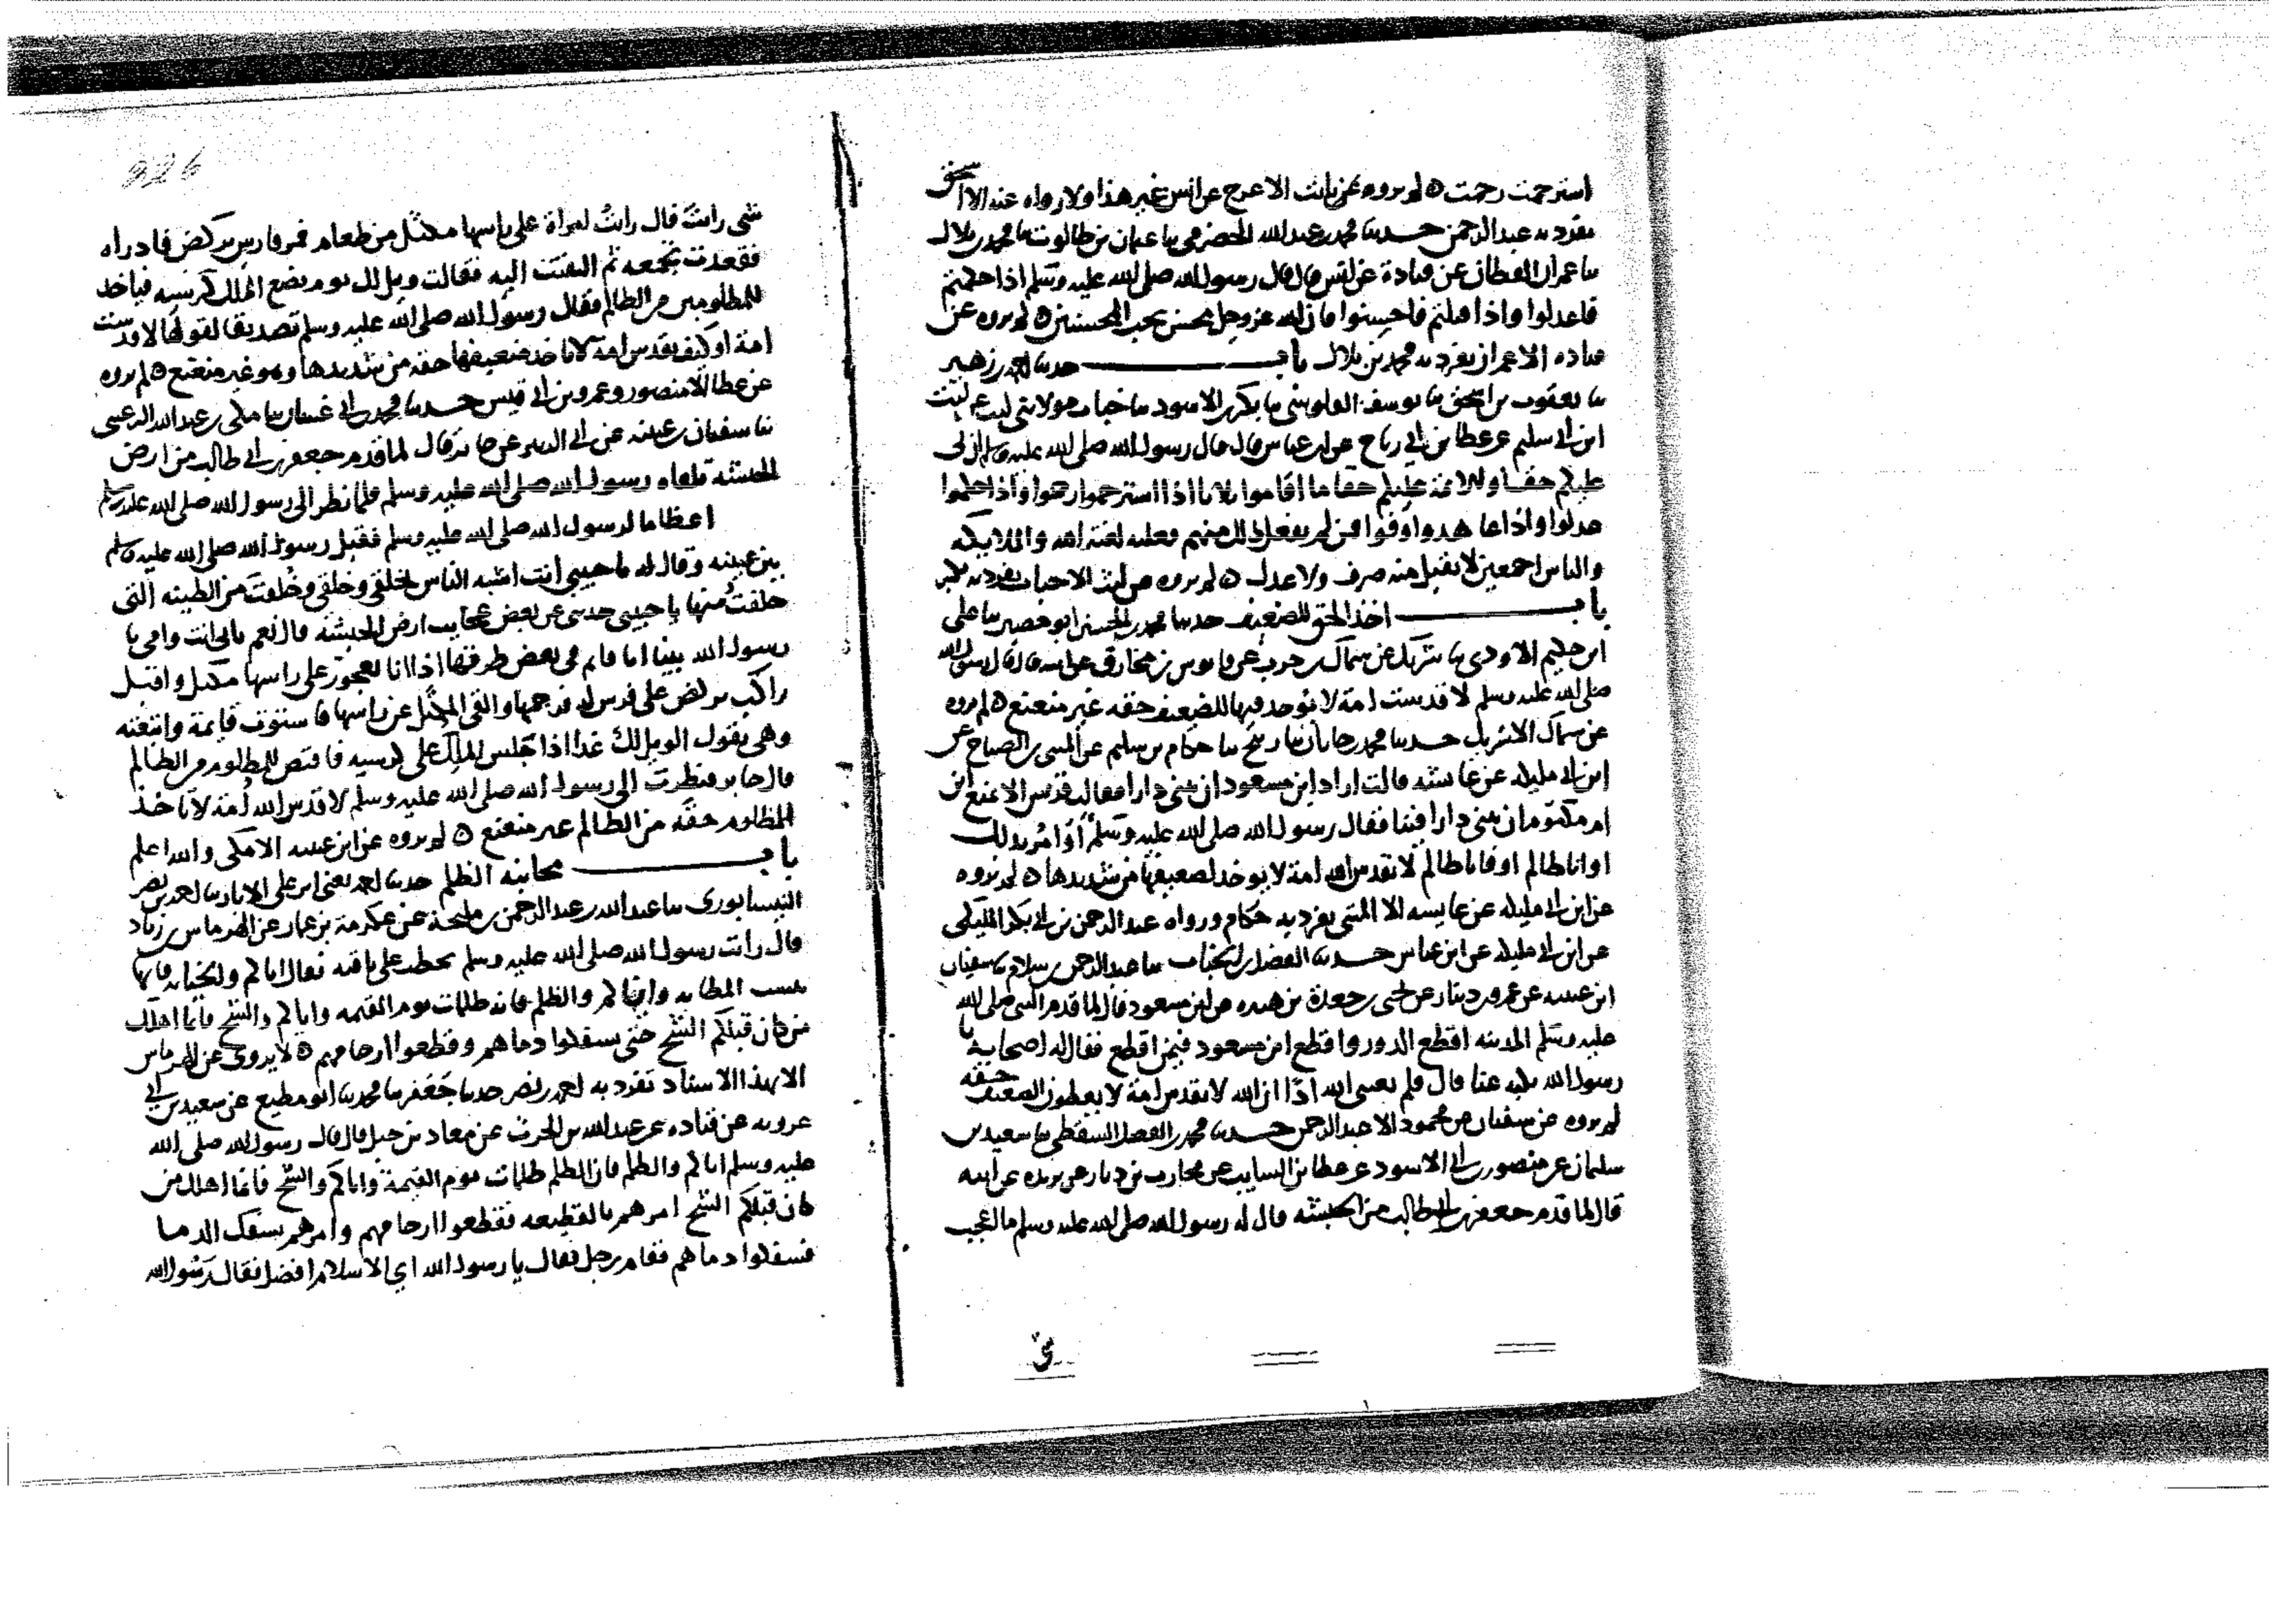 استرحمت رحمت ه لم يروه عن ثابت الاعرج عن انس غير هذا ولا رواه عنه الا اسحق
تفرد به عبد الرحمن حدثنا محمد بن عبد الله الحضرمي ثنا عثمان بن طالوت ثنا محمد بن بلال
ثنا عمران القطان عن قتادة عن انس قال قال رسول الله صلى الله عليه وسلم اذا حكمتم
فاعدلوا واذا قتلتم فاحسنوا فان الله عز وجل محسن يحب المحسنين ه لم يروه عن
قتاده الا عمران تفرد به محمد بن بلال باب حدثنا احمد بن زهير
ثنا يعقوب بن اسحق ثنا يوسف ثنا بكر الاسود ثنا عن ليث
ابن ابي سليم عن عطا بن ابي رباح عن ابن عباس قال قال رسول الله صلى الله عليه وسلم ان لي
عليكم حقا وللائمة عليكم حقا ما اقاموا ثلاثا اذا استرحموا رحموا واذا حكموا
عدلوا واذا عاهدوا وفوا فمن لم يفعل ذلك منهم فعليه لعنة الله والملايكه
والناس اجمعين لا يقبل منه صرف ولا عدل ه لم يروه عن ليث الا تفرد به بكر
باب اخذ الحق للضعيف حدثنا محمد بن الحسين ابو حصين ثنا علي
ابن حكيم الاودي ثنا شريك عن سماك بن حرب عن قابوس بن مخارق عن ابيه قال قال رسول الله
صلى الله عليه وسلم لا قدست امة لا يوخذ فيها للضعيف حقه غير متعتع ه لم يروه
عن سماك الا شريك حدثنا محمد بن حكام بن سليم عن المثنى بن الصباح عن
ابن ابي مليكه عن عائشه قالت اراد ابن مسعود ان يبني دارا فقال الا تمنع ابن
ام مكتوم ان يبني دارا فينا فقال رسول الله صلى الله عليه وسلم
او انا ظالم او فانا ظالم لا يقدس الله امة لا يوخذ لضعيفها من شديدها ه لم يروه
عن ابن ابي مليكه عن عايشه الا المثنى تفرد به حكام ورواه عبد الرحمن بن ابي بكر المليكي
عن ابن ابي مليكه عن ابن عباس حدثنا الفضل بن الحباب ثنا عبد الرحمن بن سلام ثنا سفيان
ابن عيينه عن عمرو بن دينار عن يحيى بن جعدة بن هبيره عن ابن مسعود قال لما قدم النبي صلى الله
عليه وسلم المدينه اقطع الدور واقطع ابن مسعود فيمن اقطع فقال له اصحابه يا
رسول الله نكبه عنا قال فلم بعثني الله اذا ان الله لا يقدس امة لا يعطون الضعيف حقه
لم يروه عن سفيان الا عبد الرحمن حدثنا محمد بن الفضل السقطي ثنا سعيد بن
سليمان عن منصور بن ابي الاسود عن عطا بن السايب عن محارب بن دثار عن بريده عن ابيه
قال لما قدم جعفر بن ابي طالب من الحبشه قال له رسول الله صلى الله عليه وسلم ما اعجب
شي رايت قال رايت امراة على راسها مكتل من طعام فمر فارس يركض فاذراه
فقعدت تجمعه ثم التفتت اليه فقالت ويل لك يوم يضع الملك كرسيه فياخذ
للمظلومين من الظالم فقال رسول الله صلى الله عليه وسلم تصديقا لقولها لا قدست
امة او كيف تقدس امة لا ياخذ ضعيفها حقه من شديدها وهو غير متعتع ه لم يروه
عن عطا الا منصور وعمرو بن ابي قيس حدثنا محمد بن ابي غسان ثنا مكي بن عبد الله الرعيني
ثنا سفيان بن عيينه عن ابي الزبير عن جابر قال لما قدم جعفر بن ابي طالب من ارض
الحبشه تلقاه رسول الله صلى الله عليه وسلم فلما نظر الى رسول الله صلى الله عليه وسلم
اعظاما لرسول الله صلى الله عليه وسلم فقبل رسول الله صلى الله عليه وسلم
بين عينيه وقال له يا حبيبي انت اشبه الناس بخلقي وخلقي وخلقت من الطينه التي
خلقت منها يا حبيبي حدثني عن بعض عجايب ارض الحبشه قال نعم بابي انت وامي يا
رسول الله بينا انا قايم في بعض طرقها اذا انا بعجوز على راسها مكتل واقبل
راكب يركض على فرس له فزحمها والقى المكتل عن راسها فاستوت قايمة واتبعته
وهي تقول الويل لك غدا اذا جلس الملك على كرسيه فاقتص للمظلوم من الظالم
قال جابر فنظرت الى رسول الله صلى الله عليه وسلم لا قدس الله امة لا تاخذ
للمظلوم حقه من الظالم غير متعتع ه لم يروه عن ابن عيينه الا مكي والله اعلم
باب مجانبه الظلم حدثنا احمد يعني ابن علي الابار ثنا احمد بن نصر
النيسابوري ثنا عبد الله بن عبد الرحمن بن مليحة عن عكرمة بن عمار عن الهرماس بن زياد
قال رايت رسول الله صلى الله عليه وسلم يخطب على ناقته فقال اياكم والخيانه فانها
بئست البطانه واياكم والظلم فانه ظلمات يوم القيمه واياكم والشح فانما اهلك
من كان قبلكم الشح حتى سفكوا دماهم وقطعوا ارحامهم ه لا يروى عن الهرماس
الا بهذا الاسناد تفرد به احمد بن نصر حدثنا جعفر ثنا محمد ثنا ابو مطيع عن سعيد بن ابي
عروبه عن قتاده عن عبد الله بن الحرث عن معاذ بن جبل قال قال رسول الله صلى الله
عليه وسلم اياكم والظلم فان الظلم ظلمات يوم القيمة واياكم والشح فانما اهلك من
كان قبلكم الشح امرهم بالقطيعه فقطعوا ارحامهم وامرهم بسفك الدما
فسفكوا دماهم فقام رجل فقال يا رسول الله اي الاسلام افضل فقال رسول الله